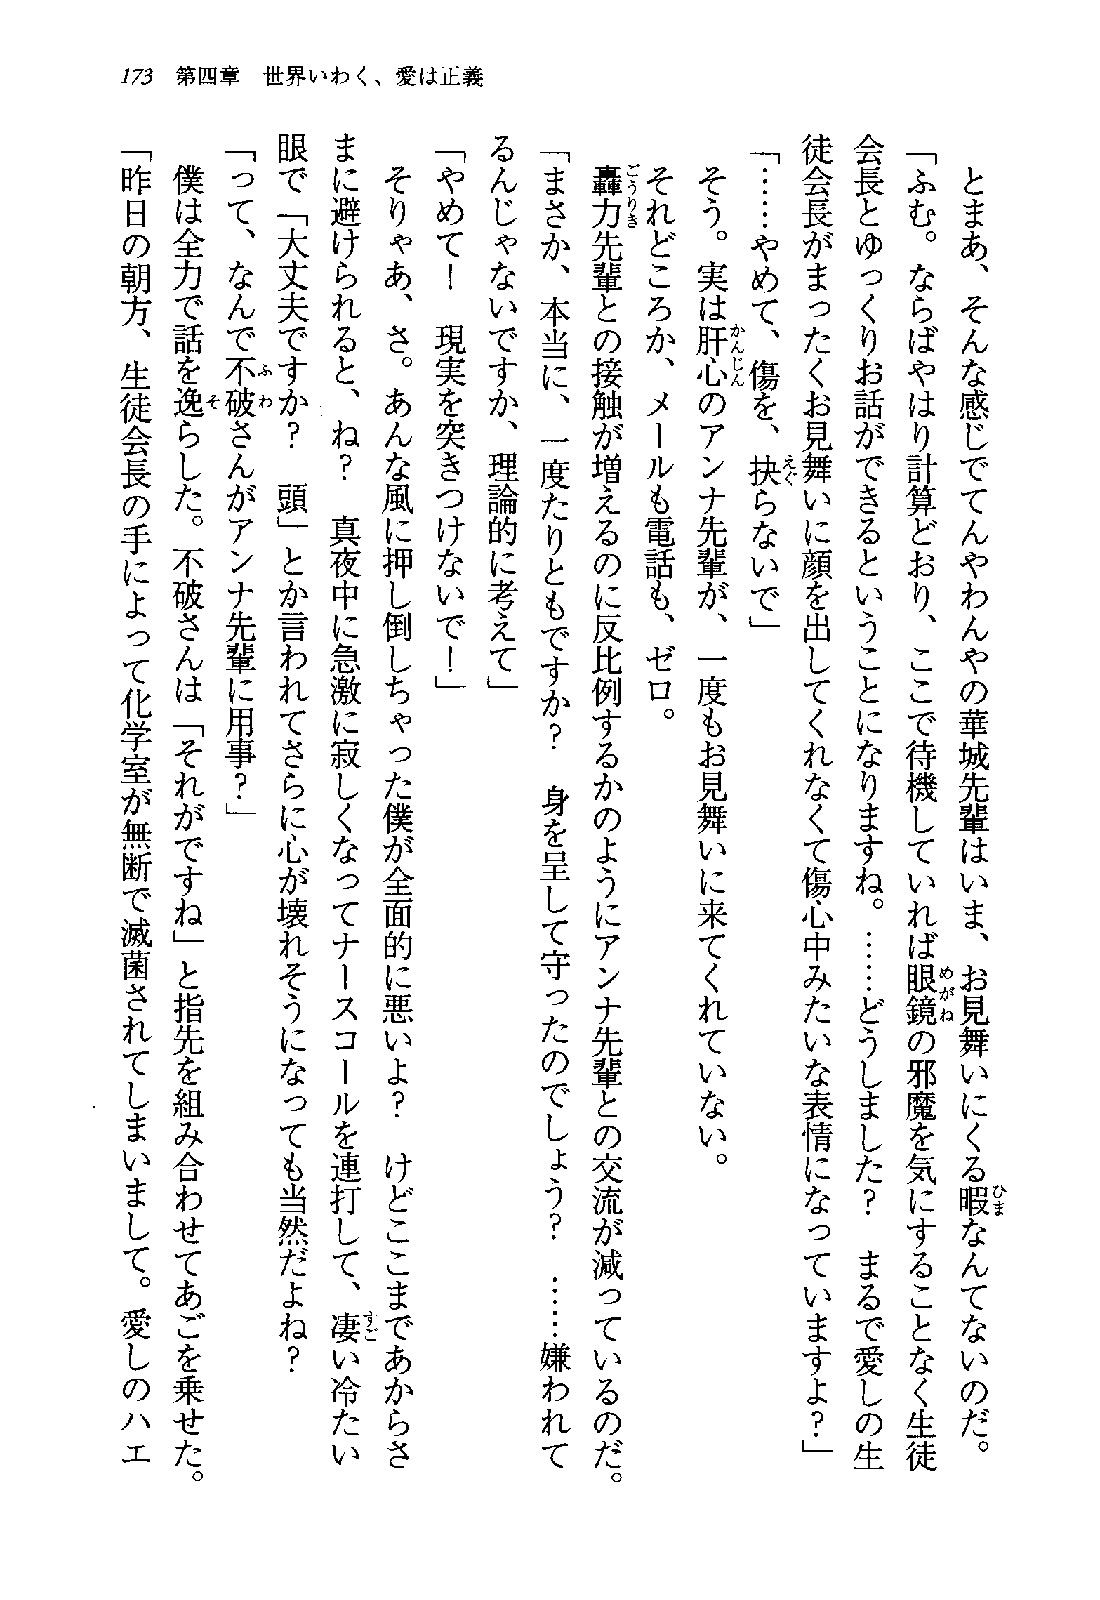 173 第四章 世界いわく、愛は正義
とまあ、そんな感じでてんやわんやの華城先輩はいま、お見舞いにくる暇なんてないのだ。
「ふむ。ならばやはり計算どおり、ここで待機していれば眼鏡の邪魔を気にすることなく生徒
会長とゆっくりお話ができるということになりますね。……どうしました？ まるで愛しの生
徒会長がまったくお見舞いに顔を出してくれなくて傷心中みたいな表情になっていますよ？」
「……やめて、傷を、抉らないで」
そう。実は肝心のアンナ先輩が、一度もお見舞いに来てくれていない。
それどころか、メールも電話も、ゼロ。
轟力先輩との接触が増えるのに反比例するかのようにアンナ先輩との交流が減っているのだ。
「まさか、本当に、一度たりともですか？ 身を呈して守ったのでしょう？ ……嫌われて
るんじゃないですか、理論的に考えて」
「やめて！ 現実を突きつけないで！」
そりゃあ、さ。あんな風に押し倒しちゃった僕が全面的に悪いよ？ けどここまであからさ
まに避けられると、ね？ 真夜中に急激に寂しくなってナースコールを連打して、凄い冷たい
眼で「大丈夫ですか？ 頭」とか言われてさらに心が壊れそうになっても当然だよね？
「って、なんで不破さんがアンナ先輩に用事？」
僕は全力で話を逸らした。不破さんは「それがですね」と指先を組み合わせてあごを乗せた。
「昨日の朝方、生徒会長の手によって化学室が無断で滅菌されてしまいまして。愛しのハエ